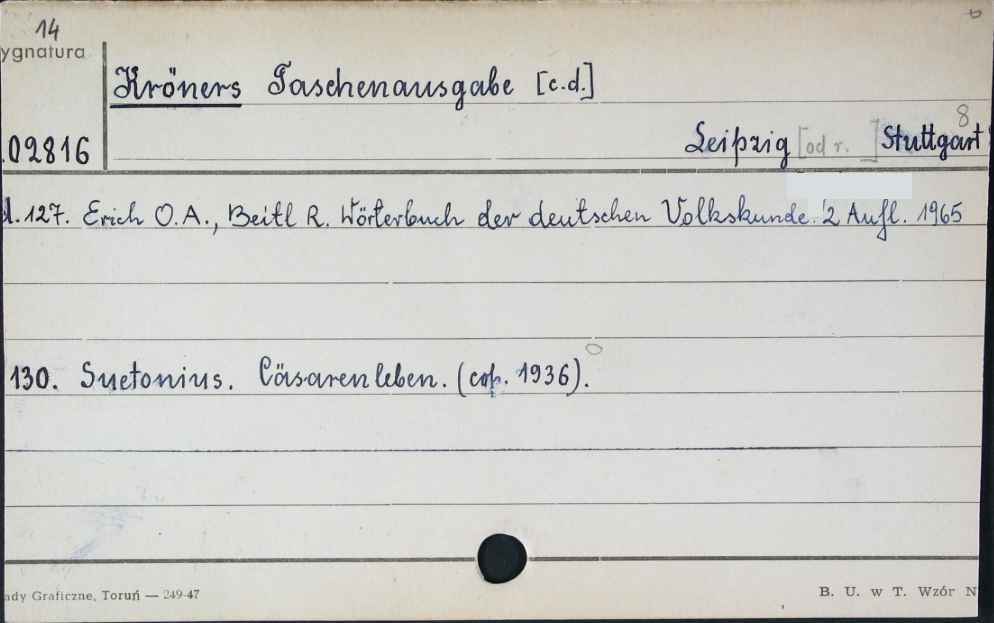 14
ygnatura
Kröners Taschenausgabe [c.d.]
8
02816
Leipzig [od r. ] Stuttgart
d. 127. Erich O.A., Beitl R. Wörterbuch der deutschen Volkskunde. 2 Aufl. 1965
130. Suetonius. Cäsarenleben. (cop. 1936).
ady Graficzne, Toruń — 249-47
B. U. w T. Wzór N